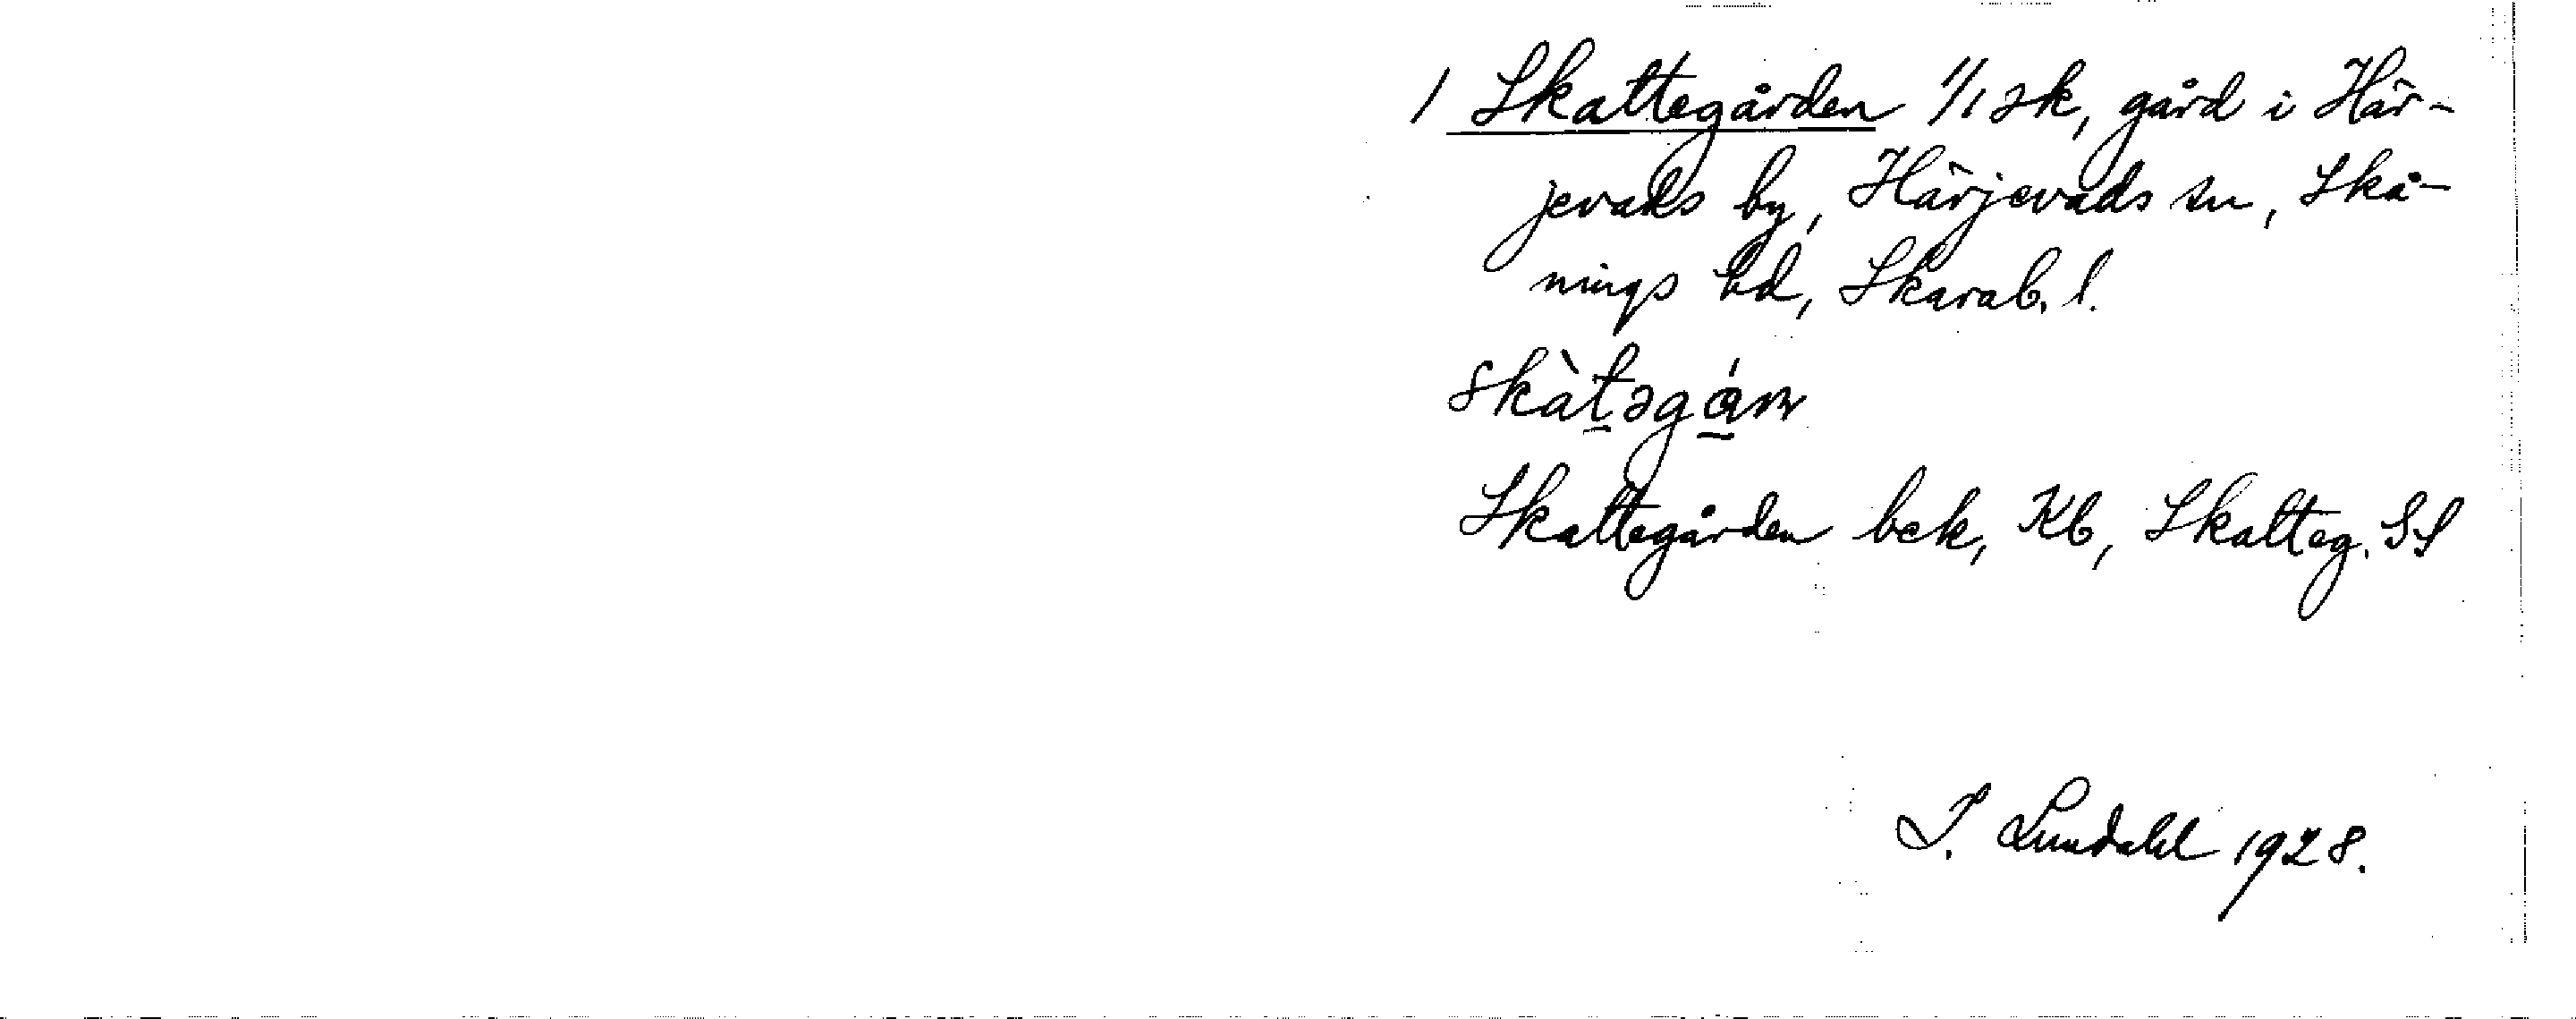 1 Skattegården 1/1 sk, gård i Här-
jevads by, Härjevads sn, Skå-
nings hd, Skarab. l.
skàt̠əgá̠ɳ
Skattegården bek, Kb, Skatteg. SS
I. Lundahl 1928.